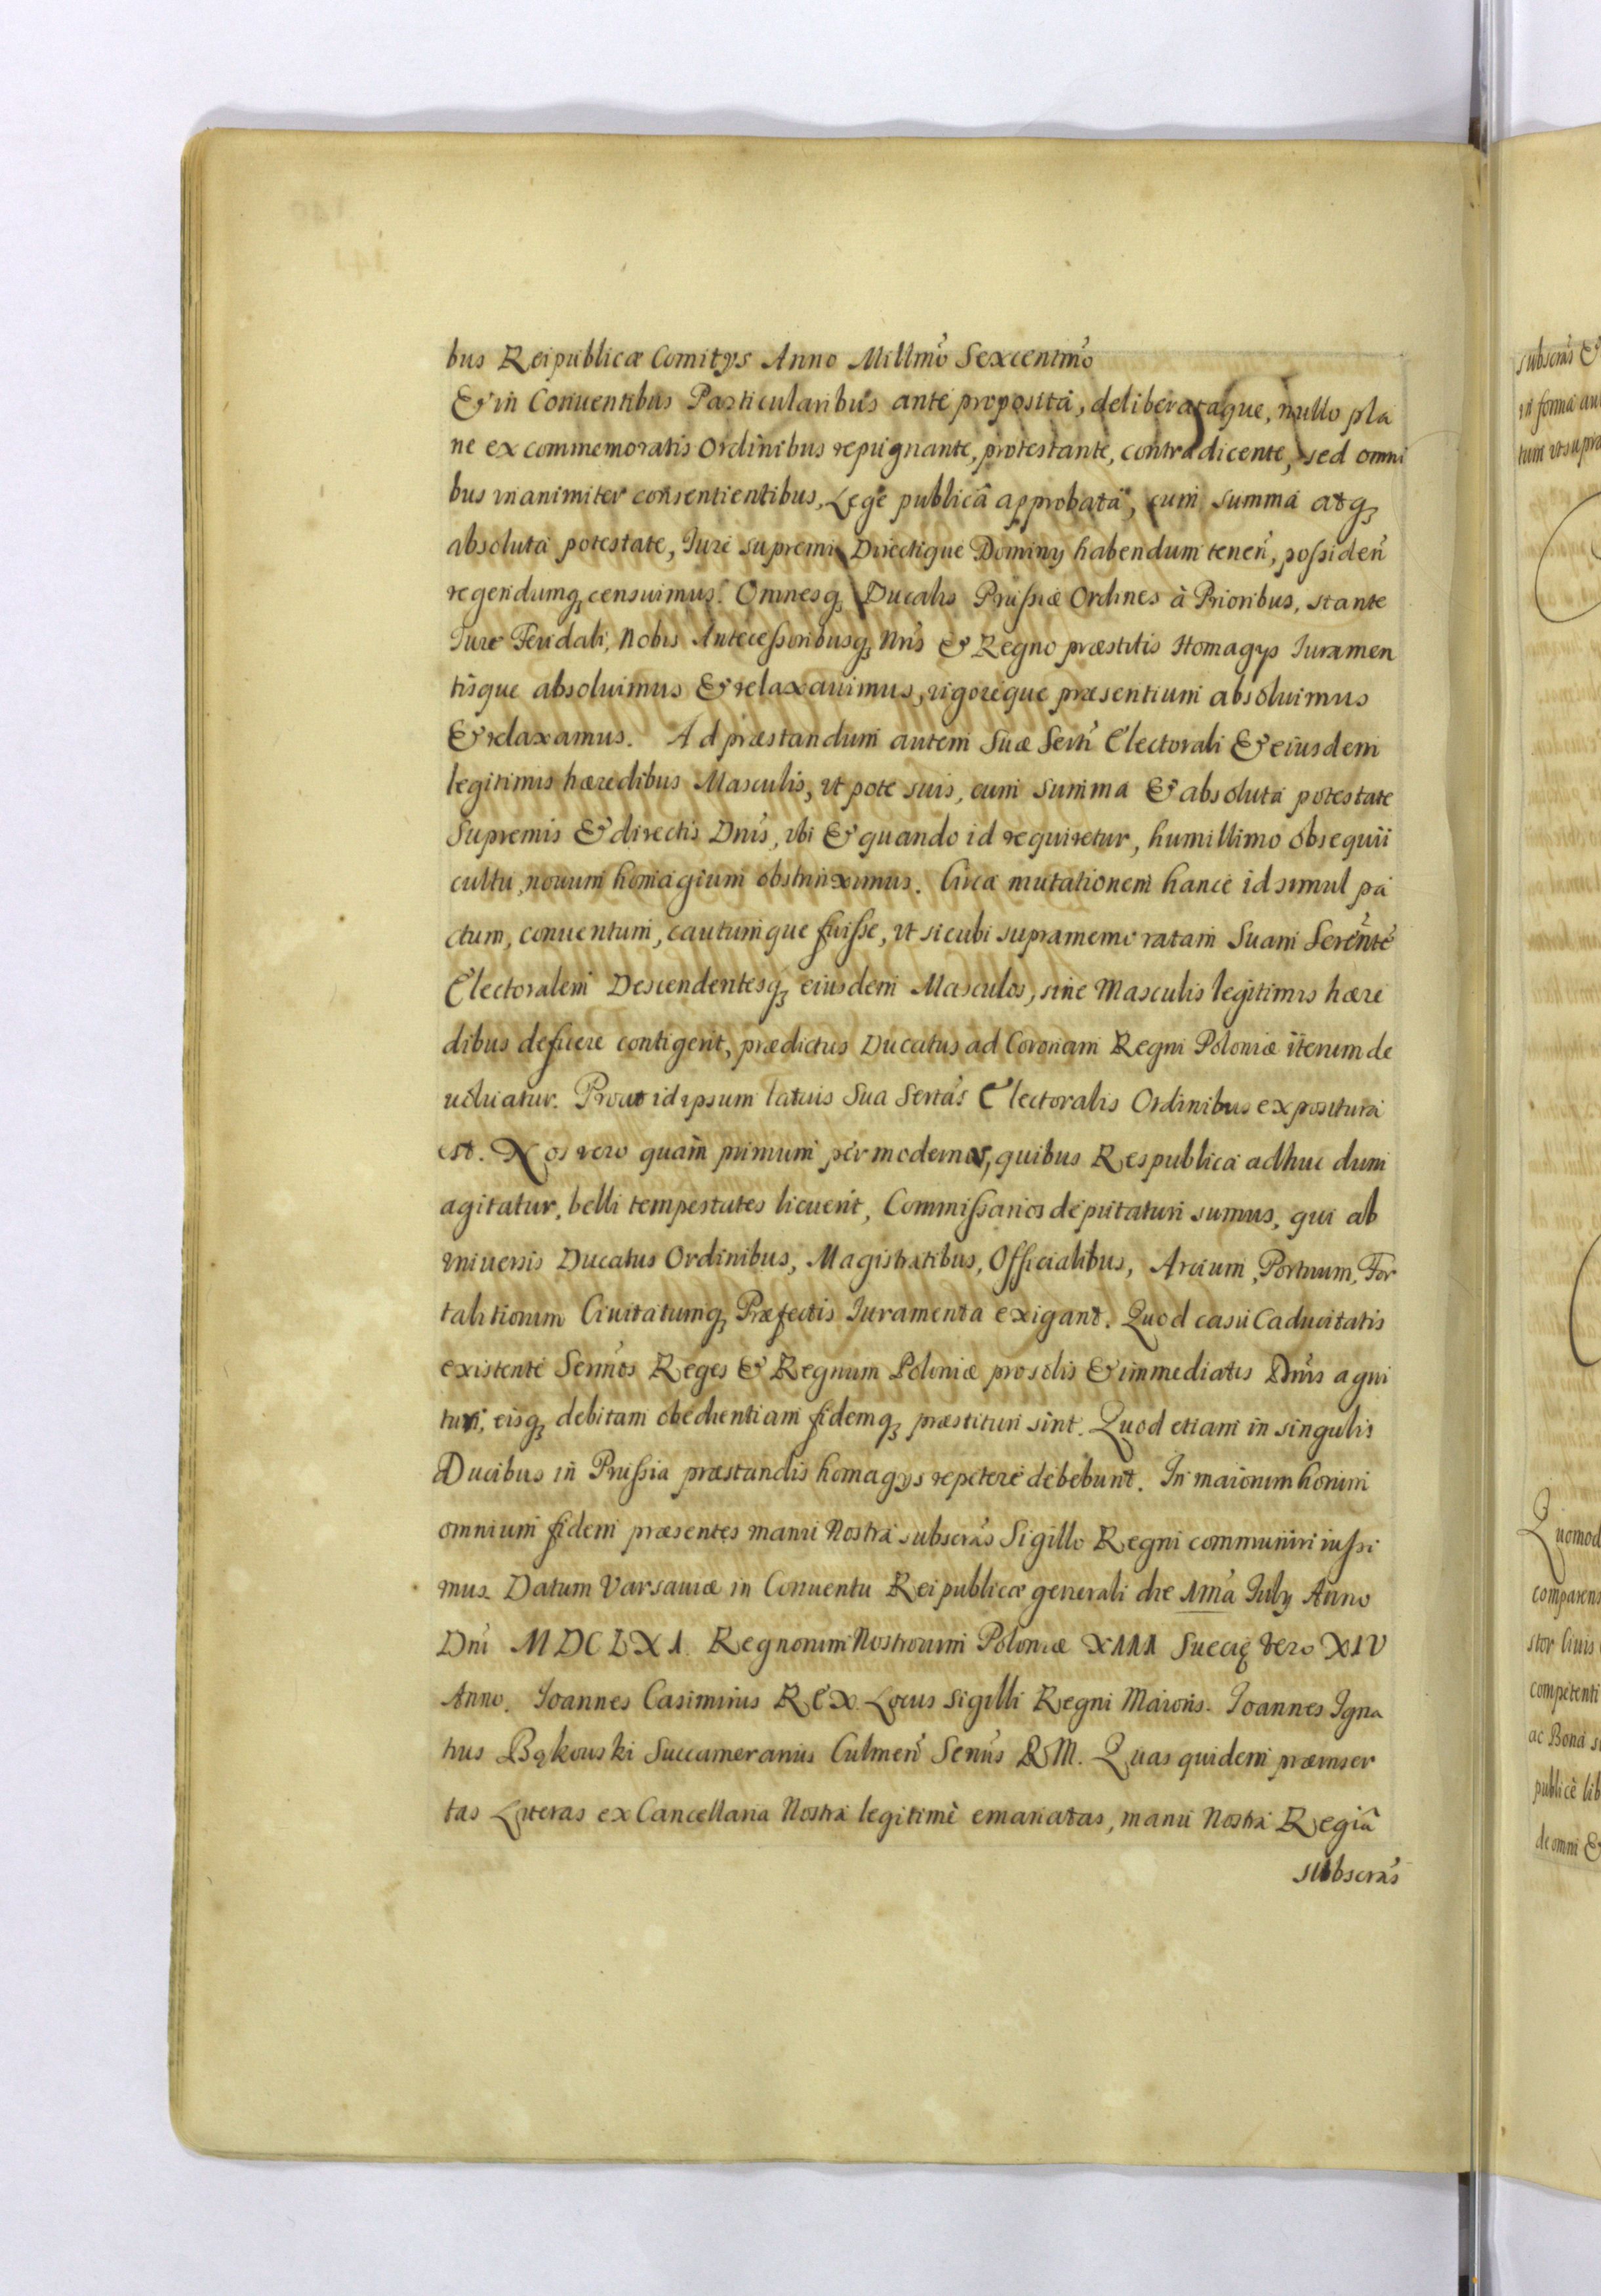 bus Reipublicæ Comitijs Anno Millmo Sexcentmo
Et in Conuentibus Particularibus ante proposita, deliberataque, nullo pla
ne ex commemoratis Ordinibus repugnante, protestante, contradicente, sed omni
bus vnanimiter consentientibus, Lege publicâ approbata, cum summa atq
absoluta potestate, Iure supremi Directique Dominij habendum tenen, possiden
regendumq censuimus. Omnesq Ducalis Prussiæ Ordines à Prioribus, stante
Iure Feudali, Nobis Antecessoribusq Nris & Regno præstitis Homagijs Iuramen
tisque absoluimus & relaxauimus, vigoreque præsentium absoluimus
& relaxamus. Ad præstandum autem Suæ Serti Electorali & eiusdem
legitimis hæredibus Masculis, vt pote suis, cum summa & absoluta potestate
Supremis & directis Dnis, vbi & quando id requiretur, humillimo obsequii
cultu, nouum homagium obstrinximus. Circa mutationem hance id simul pa
ctum, conuentum, cautumque fuisse, vt sicubi supramemoratam Suam Serente
Electoralem Descendentesq eiusdem Masculos, sine Masculis legitimis hære
dibus deficere contigerit, prædictus Ducatus ad Coronam Regni Poloniæ iterum de
uoluatur. Prout id ipsum latius Sua Sertas Electoralis Ordinibus expositura
est. Nos vero quam primum per modernas, quibus Respublica adhuc dum
agitatur, belli tempestates licuerit, Commissarios deputaturi sumus, qui ab
vniuersis Ducatus Ordinibus, Magistratibus, Officialibus, Arcium, Portuum, For
talitiorum Ciuitatumq Præfectis Iuramenta exigant. Quod casu Caducitatis
existente Sermos Reges & Regnum Poloniæ pro solis & immediatis Dnis agni
turi, eisq debitam obedientiam fidemq præstituri sint. Quod etiam in singulis
Ducibus in Prussia præstandis homagijs repetere debebunt. In maiorum horum
omnium fidem præsentes manu Nostra subscras Sigillo Regni communiri iussi
mus. Datum Varsauiæ in Conuentu Reipublicæ generali die 1ma Iulij Anno
Dni MDCLXI. Regnorum Nostrorum Poloniæ XIII Sueciæ vero XIV
Anno. Ioannes Casimirus REX. Locus Sigilli Regni Maioris. Ioannes Igna
tius Bąkowski Succamerarius Culmen Senus RM. Quas quidem præinser
tas Literas ex Cancellaria Nostra legitimè emanatas, manu Nostra Regiâ
subscras